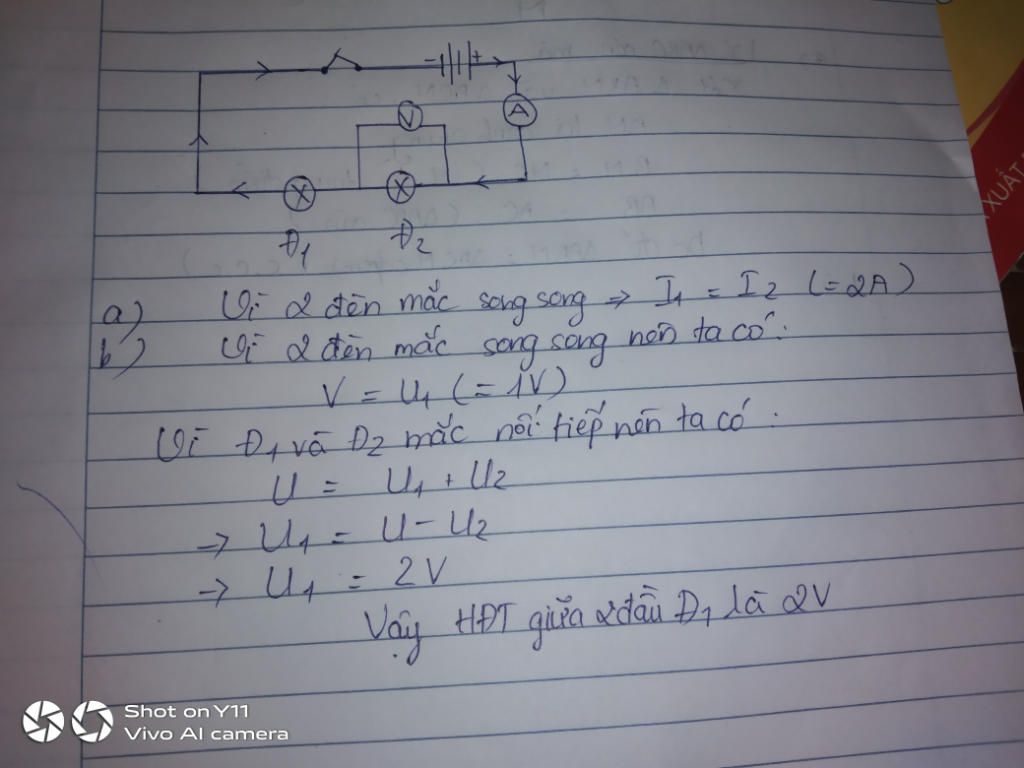 - +
A
V
X X
Đ1 Đ2
a) Vì 2 đèn mắc song song ⇒ I1 = I2 (=2A)
b) Vì 2 đèn mắc song song nên ta có:
V = U1 (= 1V)
Vì Đ1 và Đ2 mắc nối tiếp nên ta có:
U = U1 + U2
→ U1 = U - U2
→ U1 = 2V
Vậy HĐT giữa 2 đầu Đ1 là 2V
XUẤT
Shot on Y11
Vivo AI camera